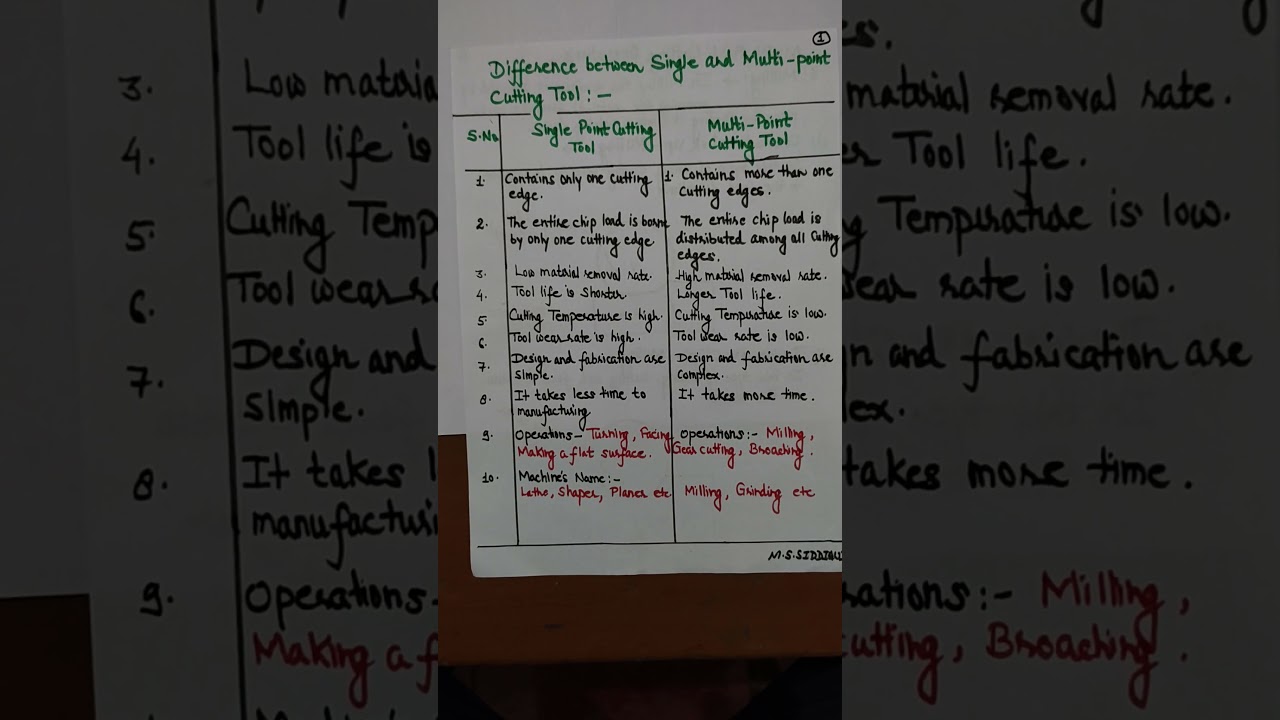 1
Difference between Single and Multi-point
Cutting Tool :-
S.No
Single Point Cutting
Tool
Multi-Point
Cutting Tool
1.
Contains only one cutting
edge.
1. Contains more than one
cutting edges.
2.
The entire chip load is borne
by only one cutting edge.
The entire chip load is
distributed among all cutting
edges.
3.
Low material removal rate.
High material removal rate.
4.
Tool life is Shorter.
Longer Tool life.
5.
Cutting Temperature is high.
Cutting Temperature is low.
6.
Tool wear rate is high.
Tool wear rate is low.
7.
Design and fabrication are
Simple.
Design and fabrication are
Complex.
8.
It takes less time to
manufacturing
It takes more time.
9.
Operations- Turning, Facing
Making a flat surface.
Operations:- Milling,
Gear cutting, Broaching.
10.
Machine's Name:-
Lathe, Shaper, Planer etc
Milling, Grinding etc